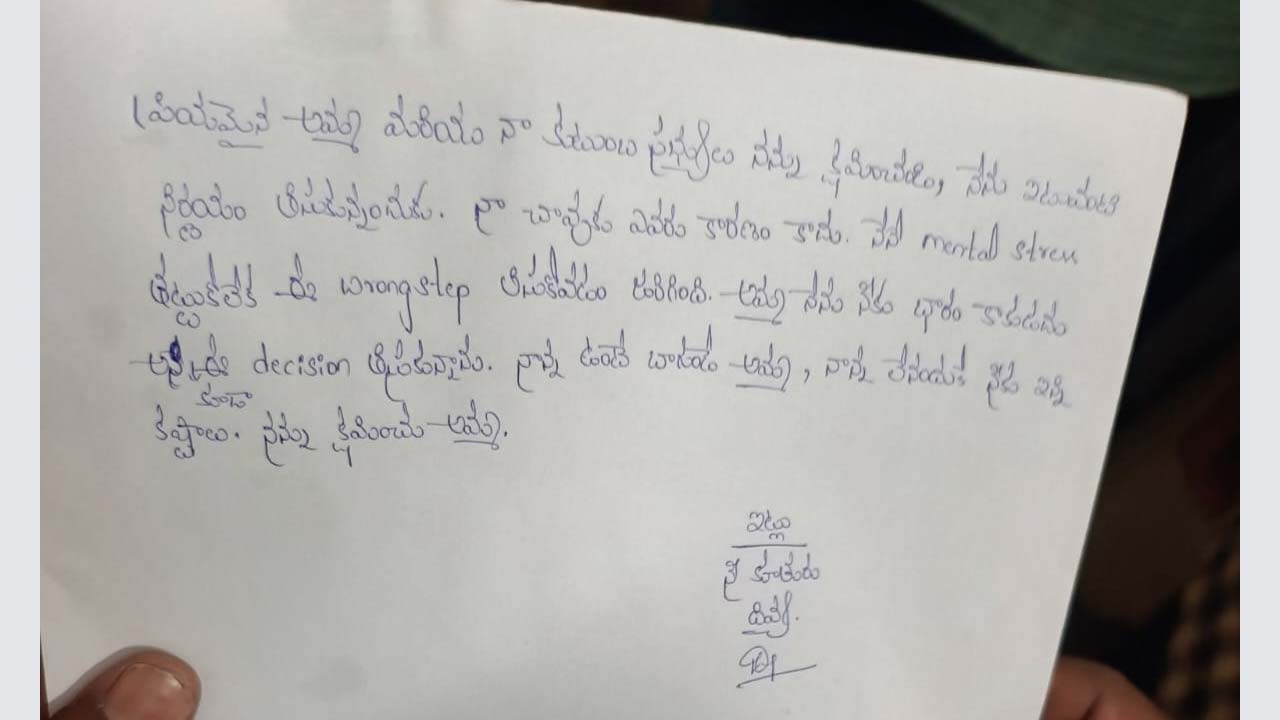 ప్రియమైన అమ్మ మరియు నా కుటుంబ సభ్యులు నన్ను క్షమించండి, నేను ఇటువంటి
నిర్ణయం తీసుకున్నందుకు. నా చావుకు ఎవరు కారణం కాదు. నేనే mental stress
తట్టుకోలేక ఈ wrong step తీసుకోవడం జరిగింది. అమ్మ నేను నీకు భారం కాకూడదు
అని ఈ decision తీసుకున్నాను. నాన్న ఉంటే బాగుండు అమ్మ, నాన్న లేనందుకే నీకు ఇన్ని
కూడా
కష్టాలు. నన్ను క్షమించు అమ్మ.
ఇట్లు
నీ కూతురు
దివ్య.